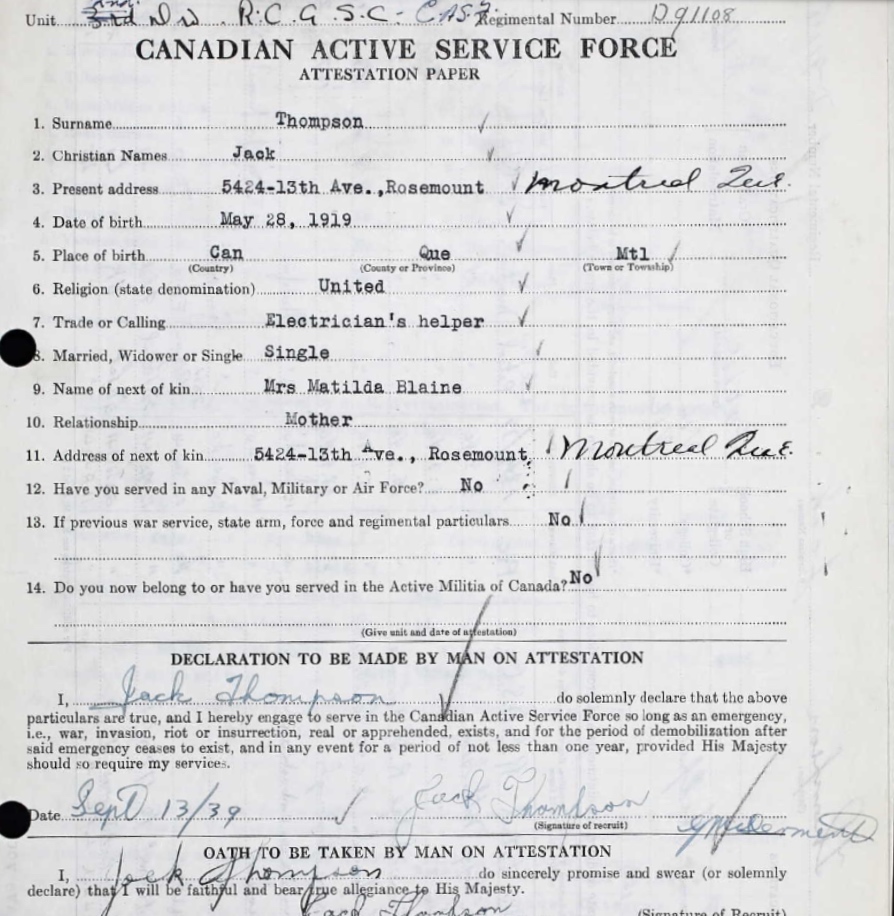 Unit 3rd Div. R.C.A.S.C. C.A.S.F. Regimental Number D91108
CANADIAN ACTIVE SERVICE FORCE
ATTESTATION PAPER
1. Surname Thompson
2. Christian Names Jack
3. Present address 5424-13th Ave.,Rosemount Montreal Que.
4. Date of birth May 28, 1919
5. Place of birth Can Que Mtl
(Country) (County or Province) (Town or Township)
6. Religion (state denomination) United
7. Trade or Calling Electrician's helper
8. Married, Widower or Single Single
9. Name of next of kin Mrs Matilda Blaine
10. Relationship Mother
11. Address of next of kin 5424-13th Ave., Rosemount Montreal Que.
12. Have you served in any Naval, Military or Air Force? No
13. If previous war service, state arm, force and regimental particulars No
14. Do you now belong to or have you served in the Active Militia of Canada? No
(Give unit and date of attestation)
DECLARATION TO BE MADE BY MAN ON ATTESTATION
I, Jack Thompson do solemnly declare that the above
particulars are true, and I hereby engage to serve in the Canadian Active Service Force so long as an emergency,
i.e., war, invasion, riot or insurrection, real or apprehended, exists, and for the period of demobilization after
said emergency ceases to exist, and in any event for a period of not less than one year, provided His Majesty
should so require my services.
Date Sept 13/39 Jack Thompson
(Signature of recruit)
OATH TO BE TAKEN BY MAN ON ATTESTATION
I, Jack Thompson do sincerely promise and swear (or solemnly
declare) that I will be faithful and bear true allegiance to His Majesty.
Jack Thompson (Signature of Recruit)